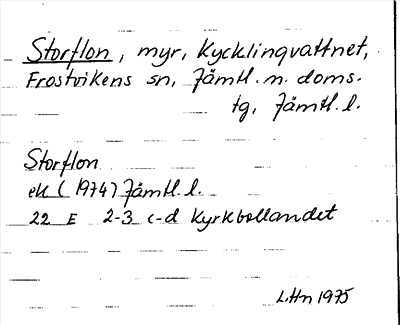 Storflon, myr, Kycklingvattnet,
Frostvikens sn, Jämtl. n. doms.
tg, Jämtl. l.
Storflon
ek (1974) Jämtl. l.
22 E 2-3 c-d Kyrkbollandet
L.Hn 1975